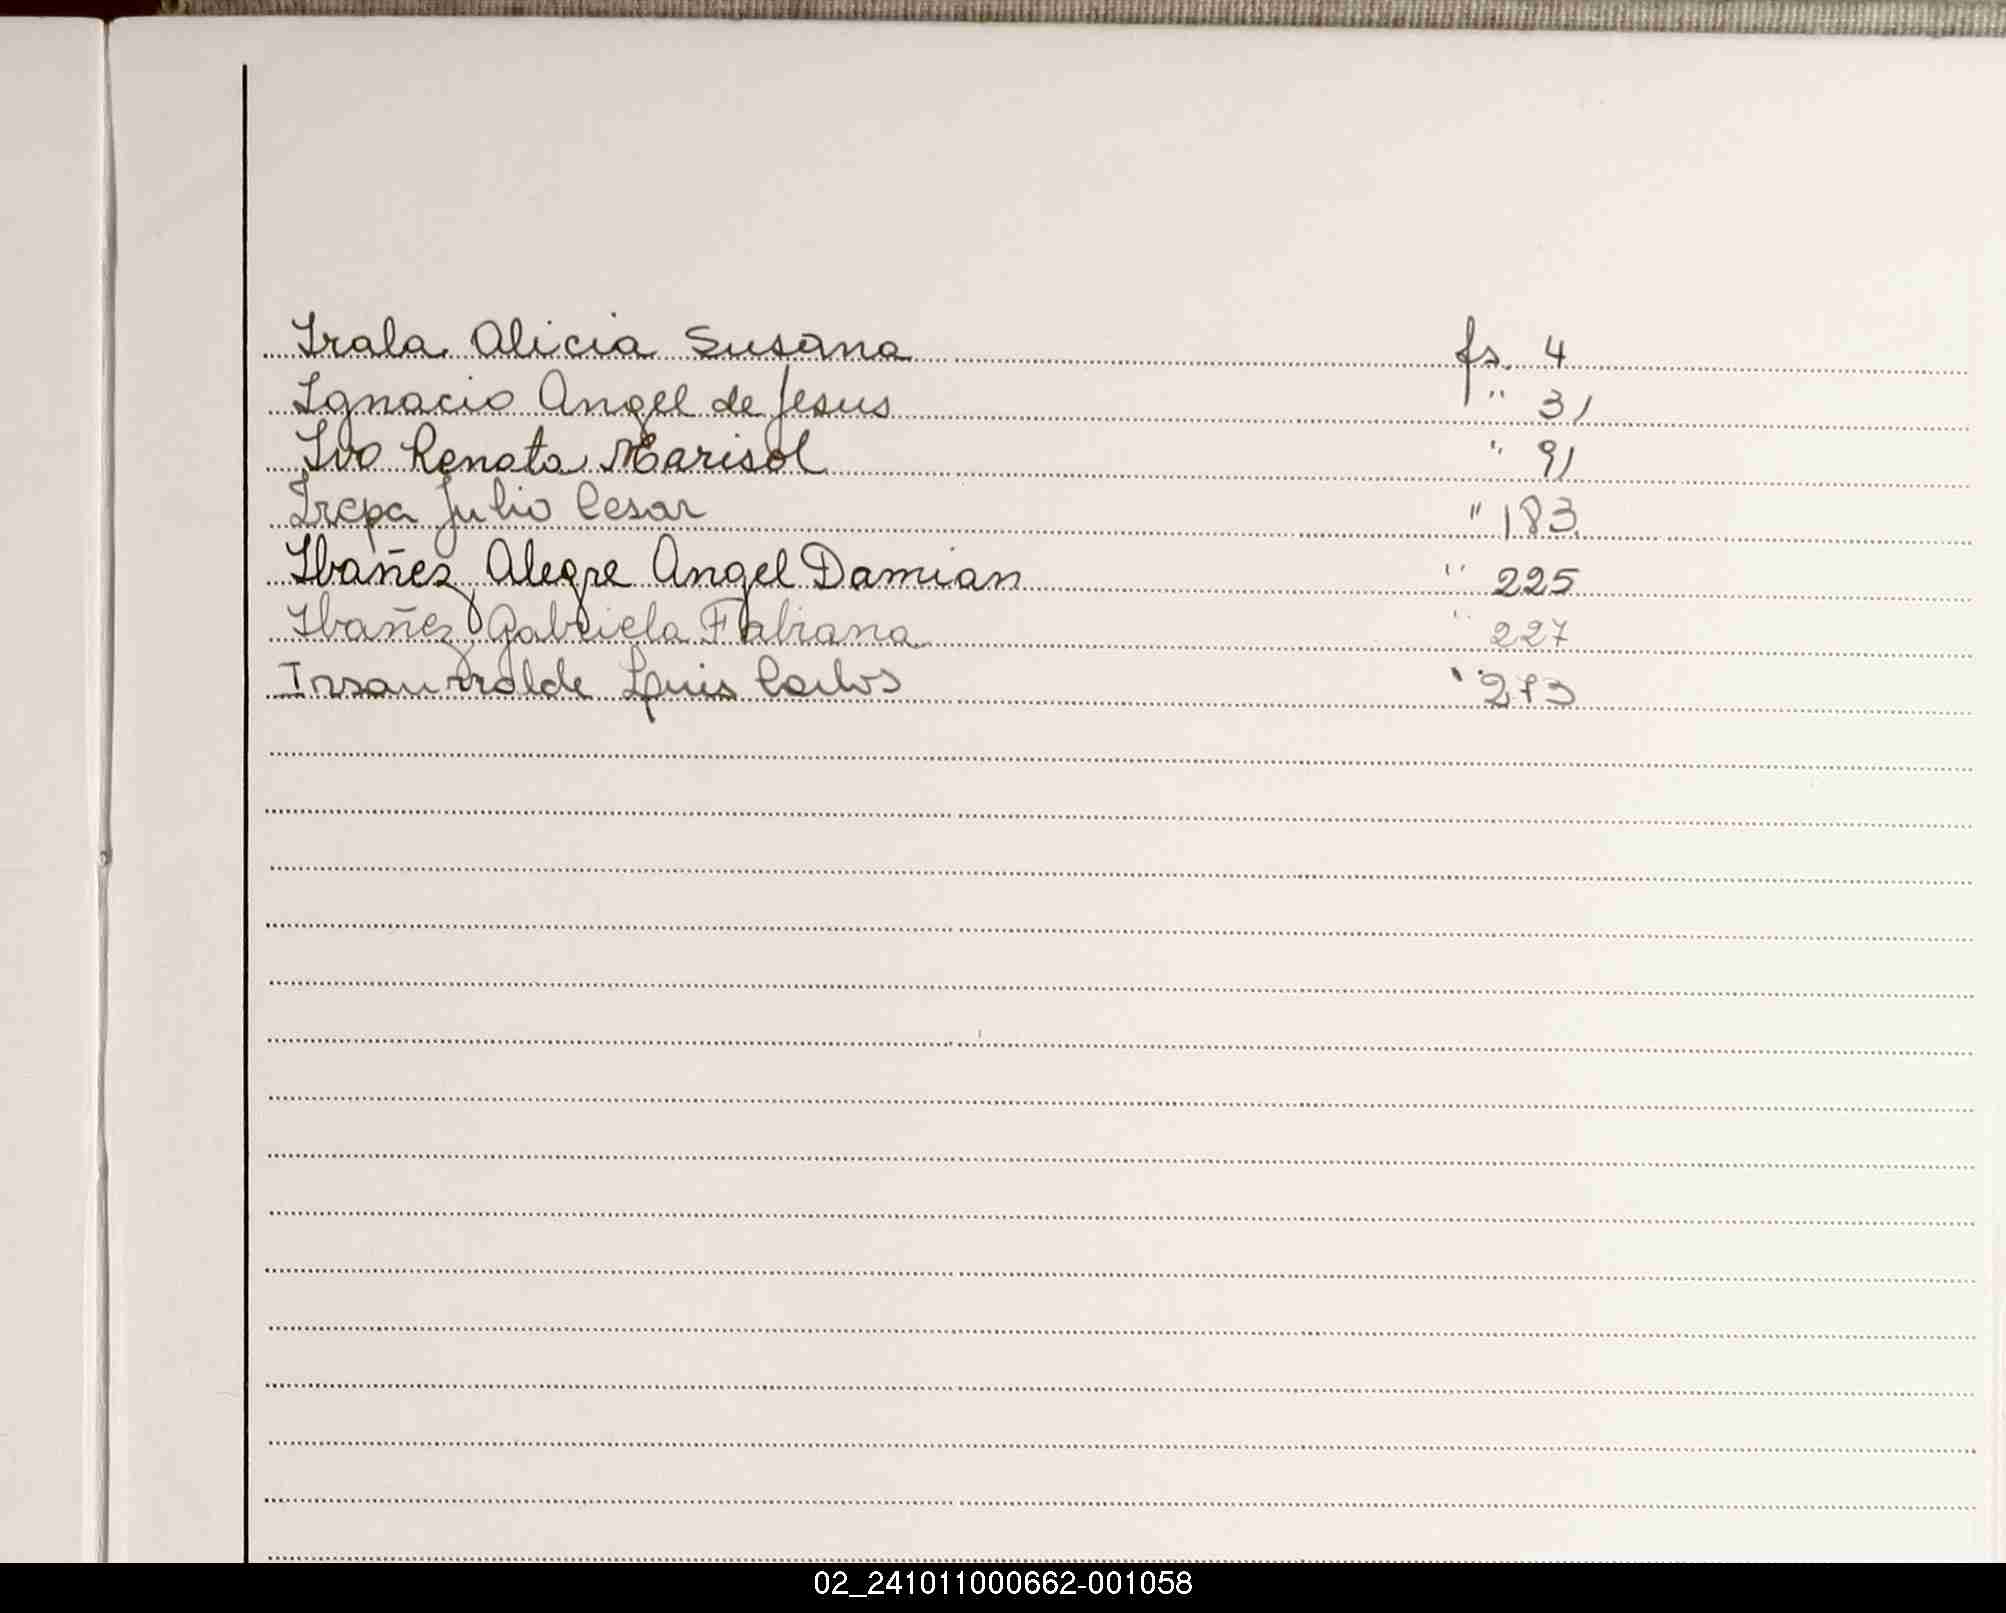 Irala Alicia Susana fs. 4
Ignacio Angel de Jesus " 31
Ivo Renata Marisol " 91
Irepa Julio Cesar " 183
Ibañez Alegre Angel Damian " 225
Ibañez Gabriela Fabiana " 227
Insaurralde Luis Carlos " 273
02_241011000662-001058